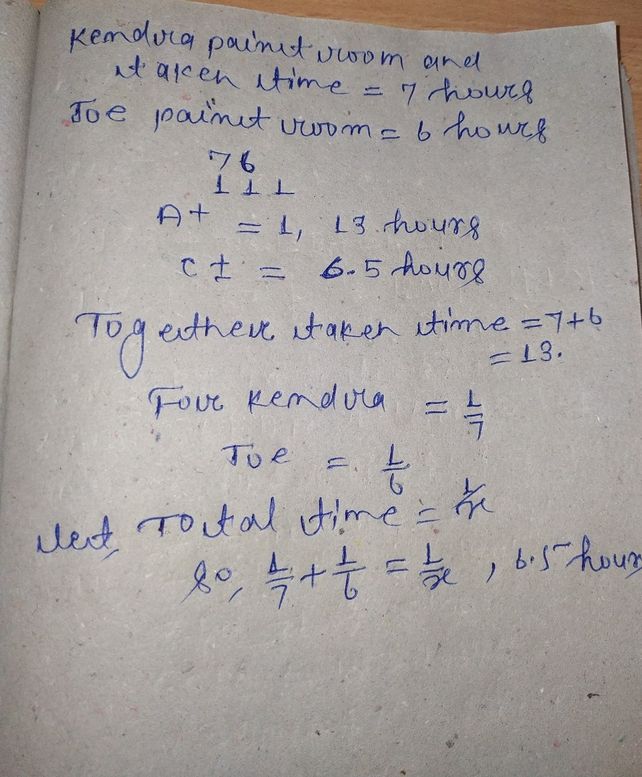 Kendra paint room and
taken time = 7 hours
Joe paint room = 6 hours
7 6
1 1 1
A+ = 1, 13 hours
C ± = 6.5 hours
Together taken time = 7+6
= 13.
For kendra = 1/7
Joe = 1/6
Let, Total time = 1/x
So, 1/7 + 1/6 = 1/x, 6.5 hours